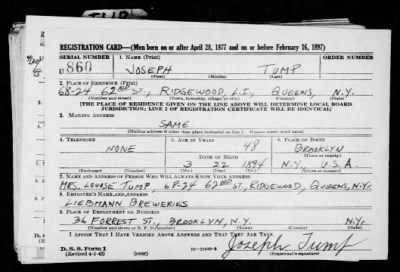 REGISTRATION CARD—(Men born on or after April 28, 1877 and on or before February 16, 1897)
SERIAL NUMBER 1. NAME (Print) ORDER NUMBER
U 860 JOSEPH TUMP
(First) (Middle) (Last)
2. PLACE OF RESIDENCE (Print)
68-24 62ND ST., RIDGEWOOD, L.I., QUEENS, N.Y.
(Number and street) (Town, township, village, or city) (County) (State)
[THE PLACE OF RESIDENCE GIVEN ON THE LINE ABOVE WILL DETERMINE LOCAL BOARD
JURISDICTION; LINE 2 OF REGISTRATION CERTIFICATE WILL BE IDENTICAL]
3. MAILING ADDRESS
SAME
[Mailing address if other than place indicated on line 2. If same insert word same]
4. TELEPHONE 5. AGE IN YEARS 6. PLACE OF BIRTH
NONE 48 BROOKLYN
DATE OF BIRTH (Town or county)
3 22 1894 N.Y. U.S.A.
(Exchange) (Number) (Mo.) (Day) (Yr.) (State or country)
7. NAME AND ADDRESS OF PERSON WHO WILL ALWAYS KNOW YOUR ADDRESS
MRS. LOUISE TUMP, 68-24 62ND ST., RIDGEWOOD, QUEENS, N.Y.
8. EMPLOYER'S NAME AND ADDRESS
LIEBMANN BREWERIES
9. PLACE OF EMPLOYMENT OR BUSINESS
36 FORREST ST., BROOKLYN, N.Y.
(Number and street or R. F. D. number) (Town) (County) (State)
I AFFIRM THAT I HAVE VERIFIED ABOVE ANSWERS AND THAT THEY ARE TRUE.
D. S. S. Form 1
(Revised 4-1-42) (over)
Joseph Tump